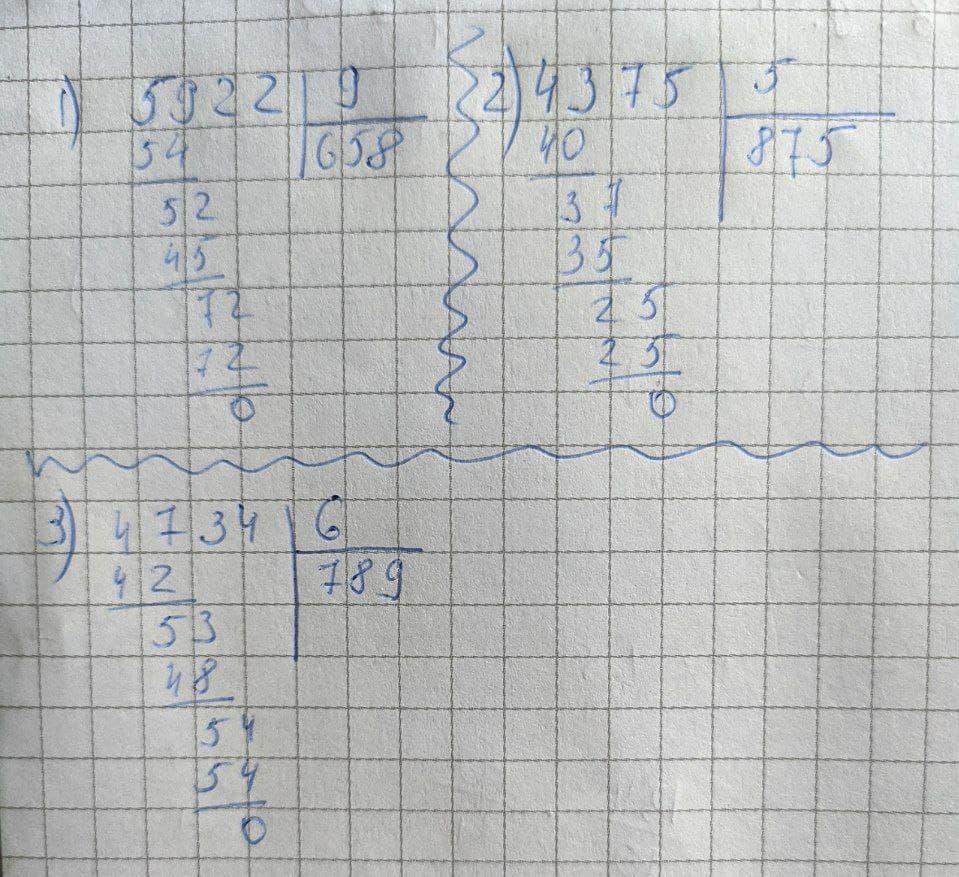 1) 5922 | 9
54 | 658
52
45
72
72
0
2) 4375 | 5
40 | 875
37
35
25
25
0
3) 4734 | 6
42 | 789
53
48
54
54
0